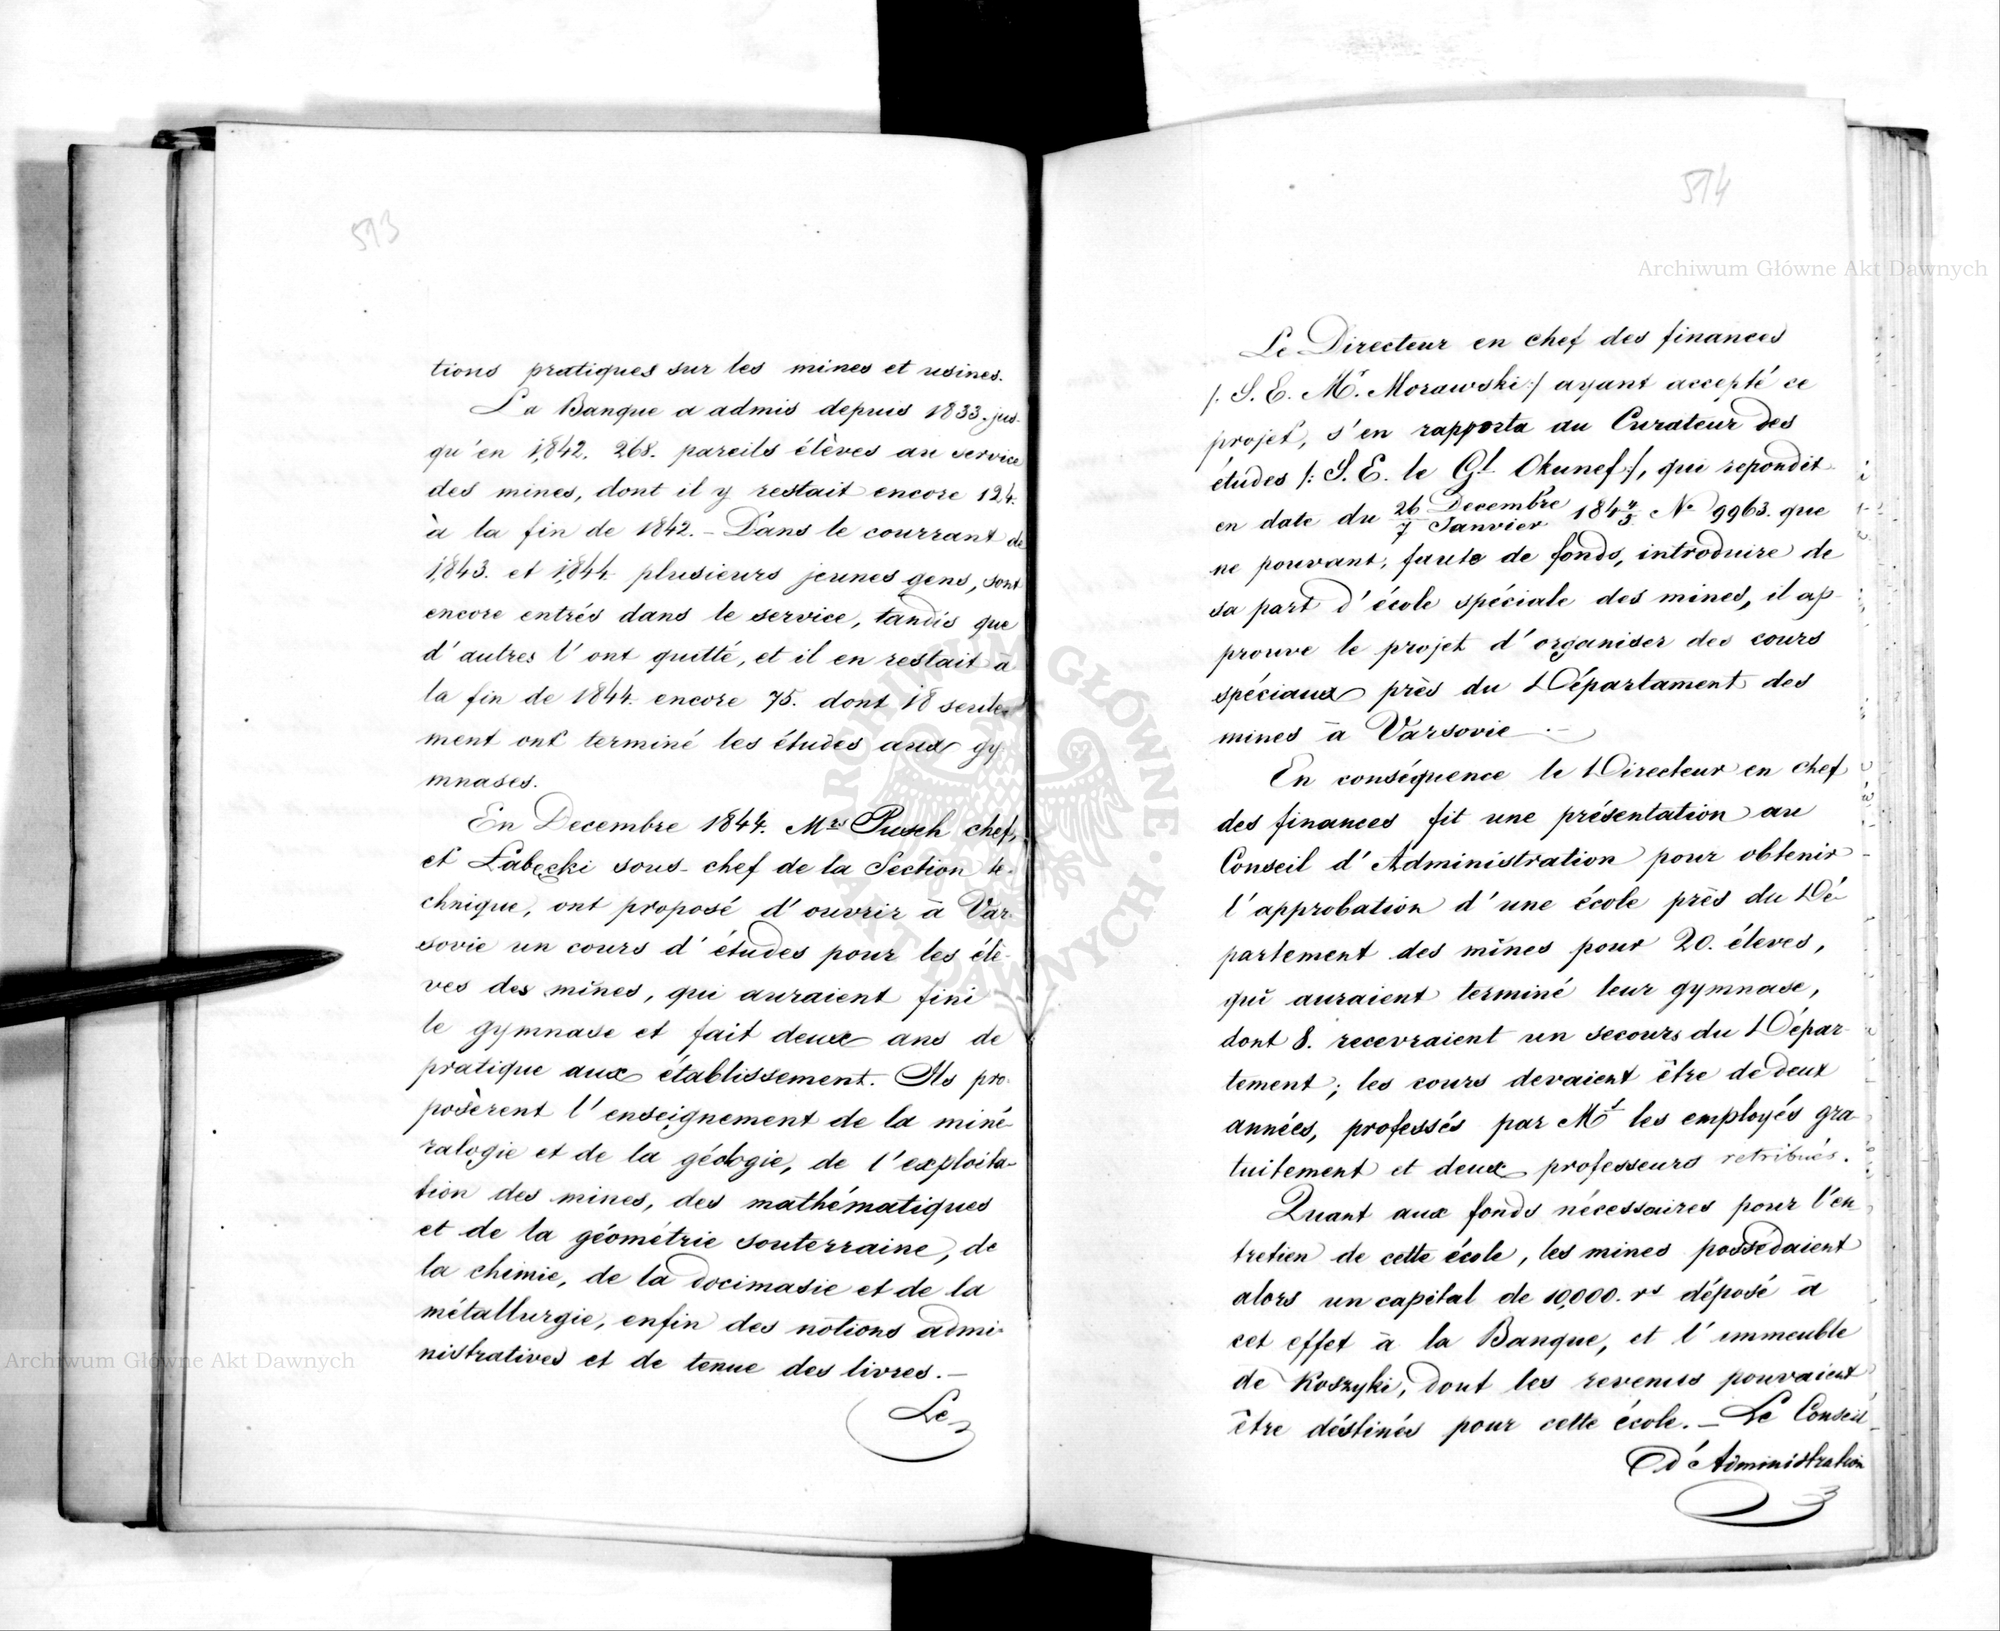 513
tions pratiques sur les mines et usines.
La Banque a admis depuis 1833. jus-
qu'en 1,842. 268. pareils élèves au service
des mines, dont il y restait encore 124.
à la fin de 1842. – Dans le courrant de
1,843. et 1,844. plusieurs jeunes gens, sont
encore entrés dans le service, tandis que
d'autres l'ont quitté, et il en restait à
la fin de 1844. encore 75. dont 18 seule-
ment ont terminé les études aux gy-
mnases.
En Decembre 1844. Mrs Pusch chef,
et Łabęcki sous-chef de la Section te-
chnique, ont proposé d'ouvrir à Var-
sovie un cours d'études pour les élè-
ves des mines, qui auraient fini
le gymnase et fait deux ans de
pratique aux établissement. Ils pro-
posèrent l'enseignement de la miné-
ralogie et de la géologie, de l'exploita-
tion des mines, des mathématiques
et de la géométrie souterraine, de
la chimie, de la docimasie et de la
métallurgie, enfin des notions admi-
nistratives et de tenue des livres. –
Le
514
Le Directeur en chef des finances
/: S. E. Mr. Morawski :/ ayant accepté ce
projet, s'en rapporta au Curateur des
études /: S. E. le Gl. Okunef :/, qui repondit
en date du 26 Decembre / 7 Janvier 184 4/5 No 9963. que
ne pouvant, faute de fonds, introduire de
sa part d'école spéciale des mines, il ap-
prouve le projet d'organiser des cours
spéciaux près du Départament des
mines à Varsovie. –
En conséquence le Directeur en chef
des finances fit une présentation au
Conseil d'Administration pour obtenir
l'approbation d'une école près du Dé-
partement des mines pour 20. éleves,
qui auraient terminé leur gymnase,
dont 8. recevraient un secours du Dépar-
tement; les cours devaient être de deux
années, professés par Mrs les employés gra-
tuitement et deux professeurs retribués.
Quant aux fonds nécessaires pour l'en-
tretien de cette école, les mines possédaient
alors un capital de 10,000. rs déposé à
cet effet à la Banque, et l'immeuble
de Koszyki, dont les revenus pouvaient
être déstinés pour cette école. – Le Conseil
d'Administration
Archiwum Główne Akt Dawnych
Archiwum Główne Akt Dawnych
ARCHIWUM GŁÓWNE AKT DAWNYCH